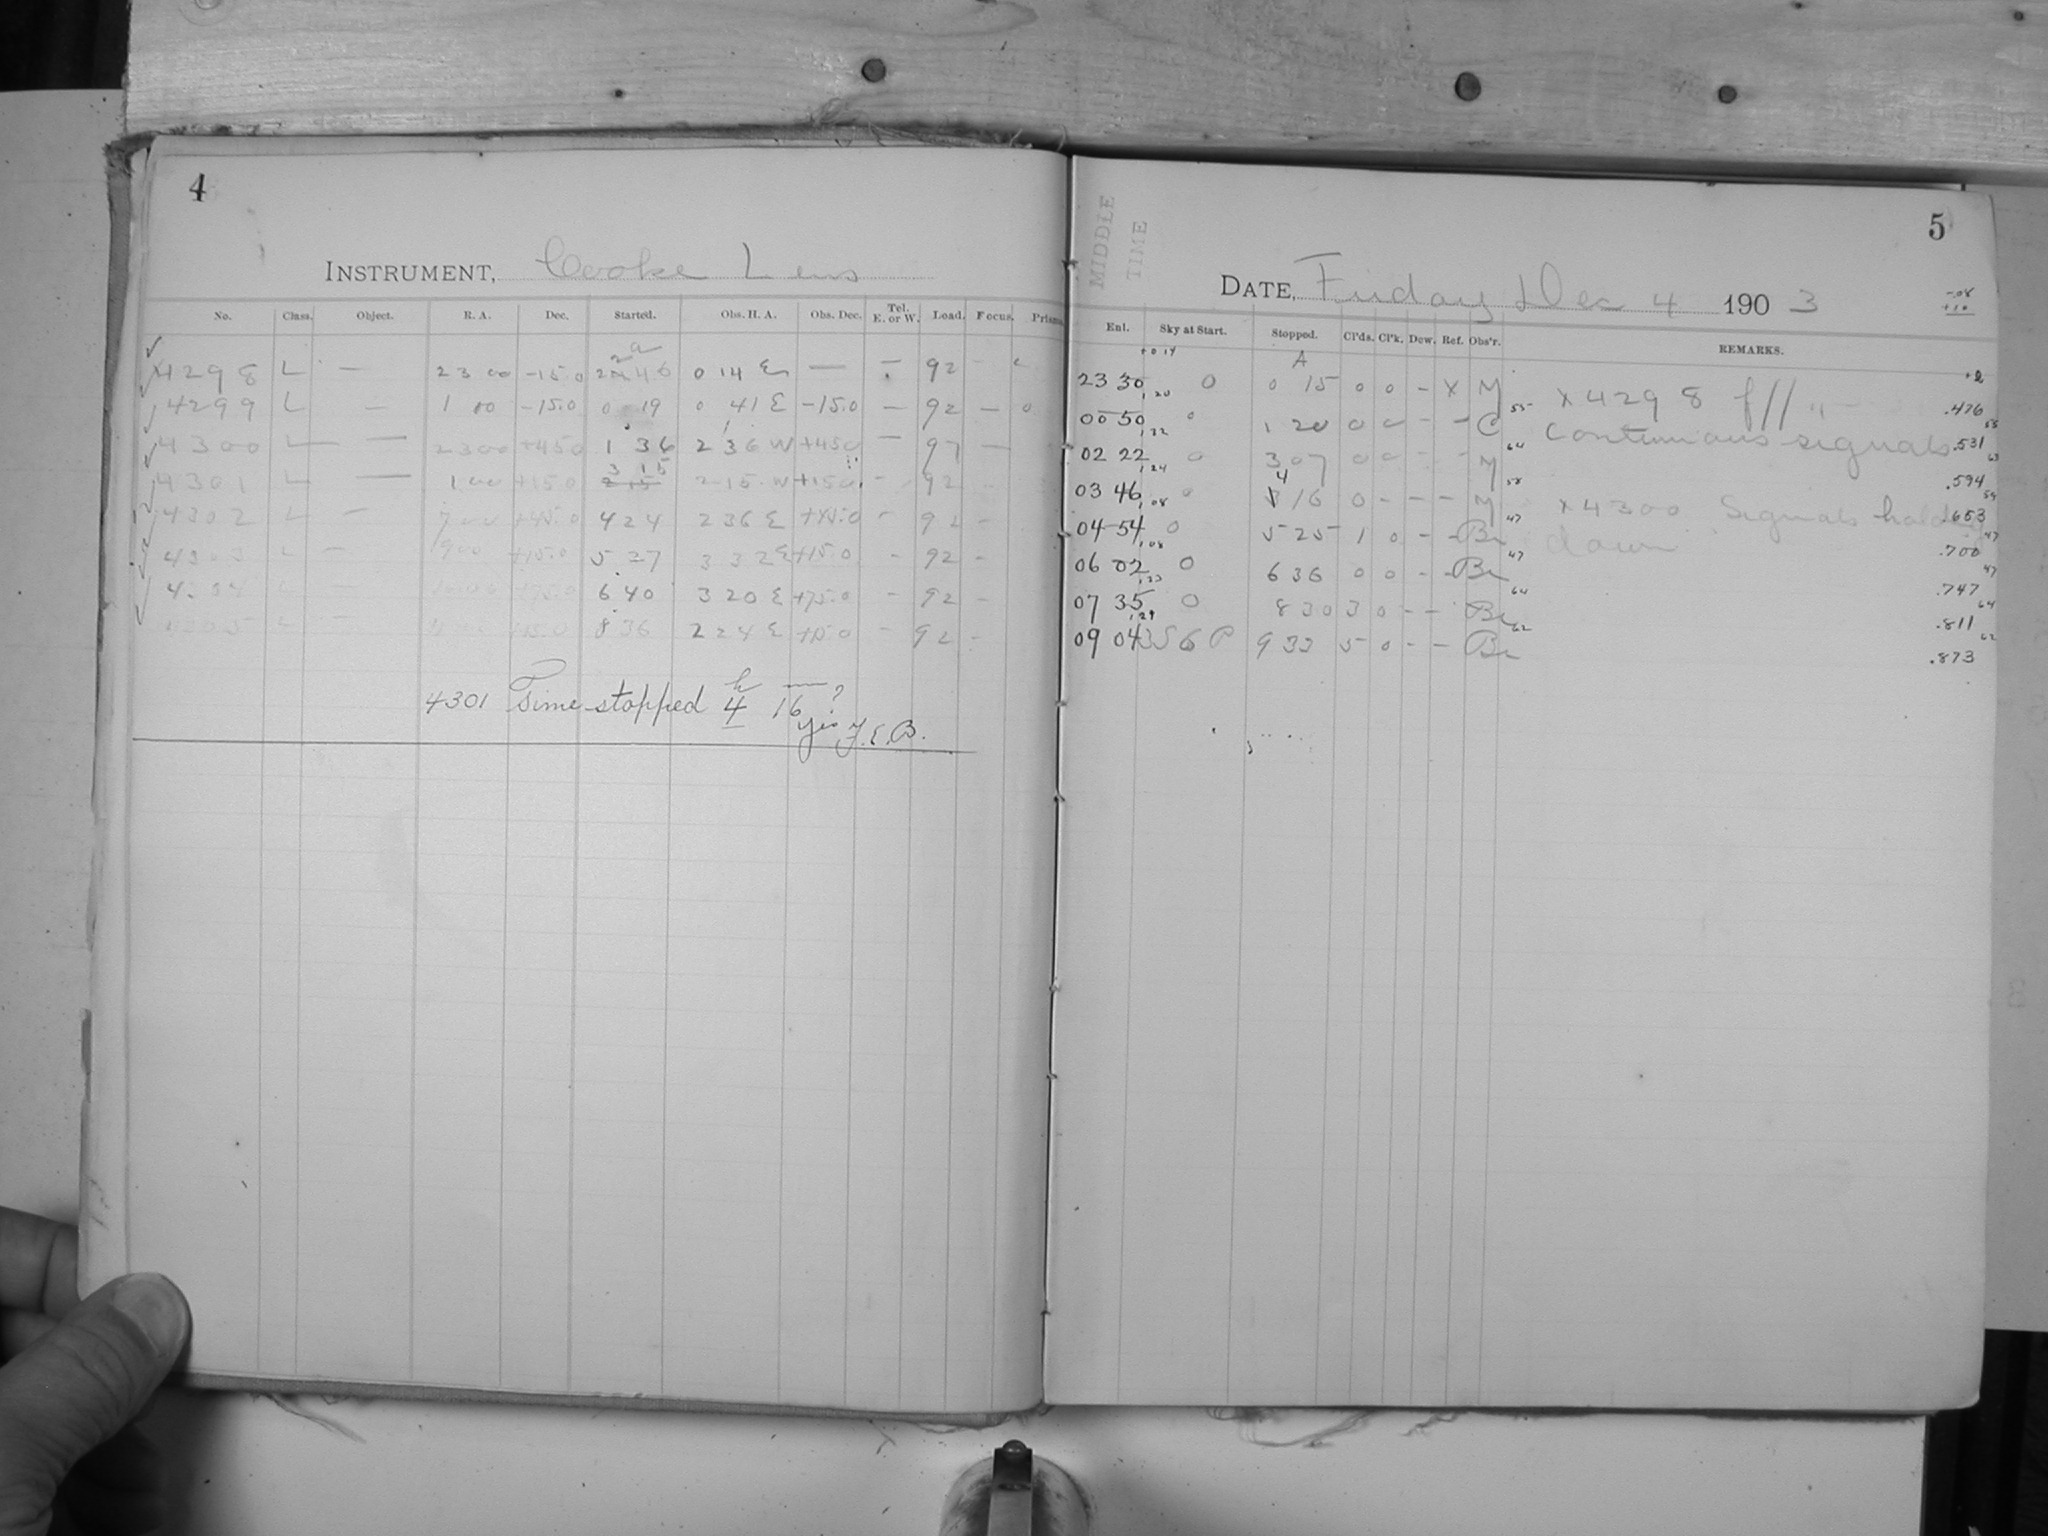 4
INSTRUMENT, Cooke Lens
No. Class. Object. R. A. Dec. Started. Obs. H. A. Obs. Dec. Tel. E. or W. Load. Focus. Prisms.
4298 L — 23 00 -15.0 46 0 14 E — — 92
4299 L — 1 00 -15.0 0 19 0 41 E -15.0 — 92 — 0
4300 L — 23 00 +45.0 1 36 2 36 W +45.0 — 92 —
3 15
4301 L — 1 00 +15.0 2 15 2 15 W +15.0 - 92 -
4302 L — 7 00 +45.0 4 24 2 36 E +45.0 - 92 -
4303 L — 9 00 +15.0 5 27 3 32 E +15.0 - 92 -
4304 L — +75.0 6 40 3 20 E +75.0 - 92 -
4305 L — +15.0 8 36 2 24 E +15.0 - 92 -
4301 Time stopped 4 h 16 m ?
yes F.E.B.
MIDDLE
TIME
5
DATE, Friday Dec 4 1903
-.08
+10
Enl. Sky at Start. Stopped. Cl'ds. Cl'k. Dew. Ref. Obs'r. REMARKS.
+0 14 A
23 30 0 0 15 0 0 - x M x 4298 f// .476
00 50 0 1 20 0 0 - - C Continuous signals .531
02 22 0 3 07 0 0 - - M .594
4
03 46 0 3 16 0 - - - M x 4300 Signals holding .653
04 54 0 5 25 1 0 - - Br down .700
06 02 0 6 36 0 0 - - Br .747
07 35 0 8 30 3 0 - - Br .811
09 04 356 P 9 33 5 0 - - Br .873